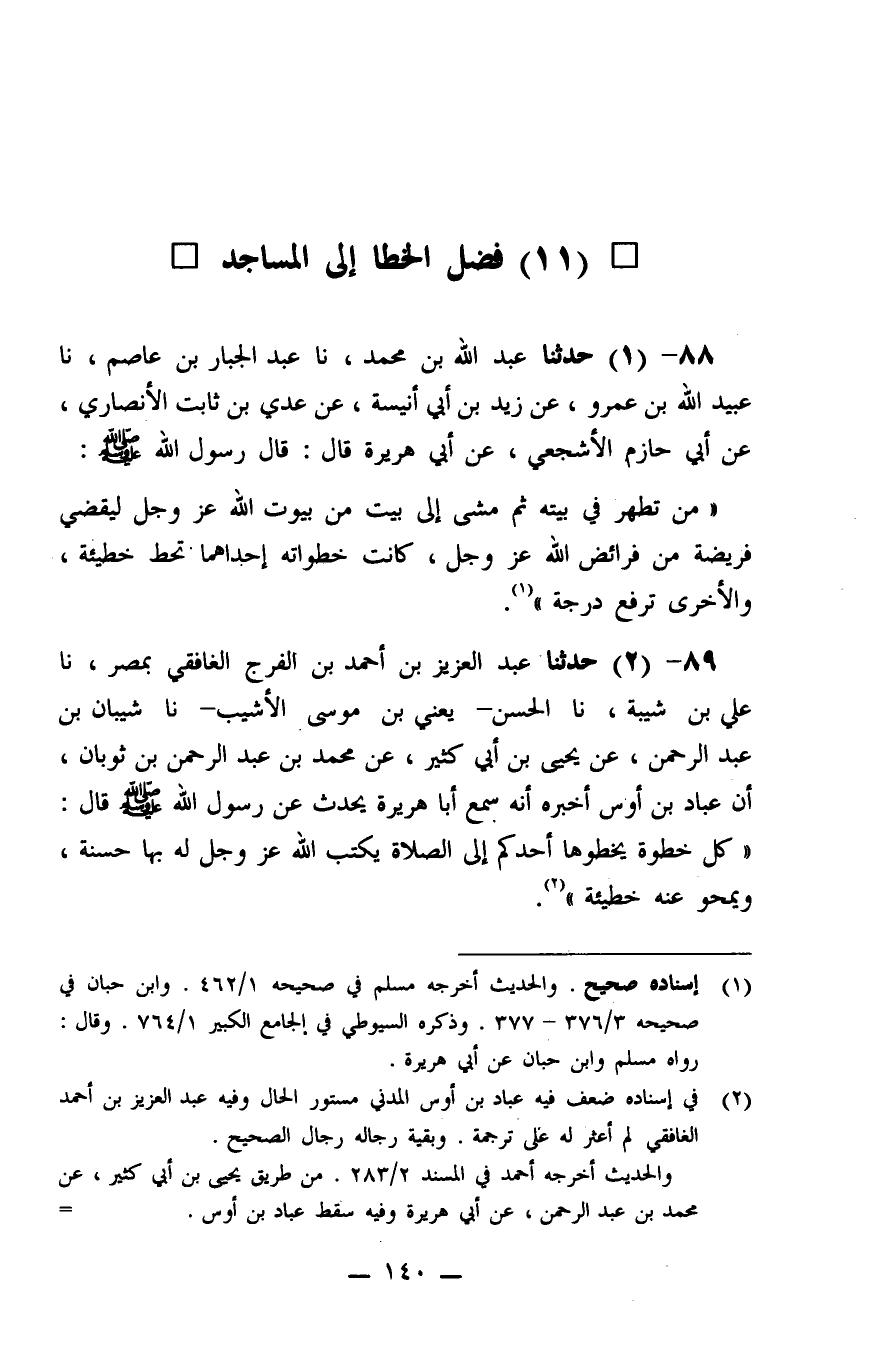 □ (١١) فضل الخطا إلى المساجد □
٨٨- (١) حدثنا عبد الله بن محمد ، نا عبد الجبار بن عاصم ، نا
عبيد الله بن عمرو ، عن زيد بن أبي أنيسة ، عن عدي بن ثابت الأنصاري ،
عن أبي حازم الأشجعي ، عن أبي هريرة قال : قال رسول الله ﷺ :
« من تطهر في بيته ثم مشى إلى بيت من بيوت الله عز وجل ليقضي
فريضة من فرائض الله عز وجل ، كانت خطواته إحداهما تحط خطيئة ،
والأخرى ترفع درجة »(١).
٨٩- (٢) حدثنا عبد العزيز بن أحمد بن الفرج الغافقي بمصر ، نا
علي بن شيبة ، نا الحسن- يعني بن موسى الأشيب- نا شيبان بن
عبد الرحمن ، عن يحيى بن أبي كثير ، عن محمد بن عبد الرحمن بن ثوبان ،
أن عباد بن أوس أخبره أنه سمع أبا هريرة يحدث عن رسول الله ﷺ قال :
« كل خطوة يخطوها أحدكم إلى الصلاة يكتب الله عز وجل له بها حسنة ،
ويمحو عنه خطيئة »(٢).
(١) إسناده صحيح . والحديث أخرجه مسلم في صحيحه ٤٦٢/١ . وابن حبان في
صحيحه ٣٧٦/٣ - ٣٧٧ . وذكره السيوطي في الجامع الكبير ٧٦٤/١ . وقال :
رواه مسلم وابن حبان عن أبي هريرة .
(٢) في إسناده ضعف فيه عباد بن أوس المدني مستور الحال وفيه عبد العزيز بن أحمد
الغافقي لم أعثر له على ترجمة . وبقية رجاله رجال الصحيح .
والحديث أخرجه أحمد في المسند ٢٨٣/٢ . من طريق يحيى بن أبي كثير ، عن
محمد بن عبد الرحمن ، عن أبي هريرة وفيه سقط عباد بن أوس . =
— ١٤٠ —